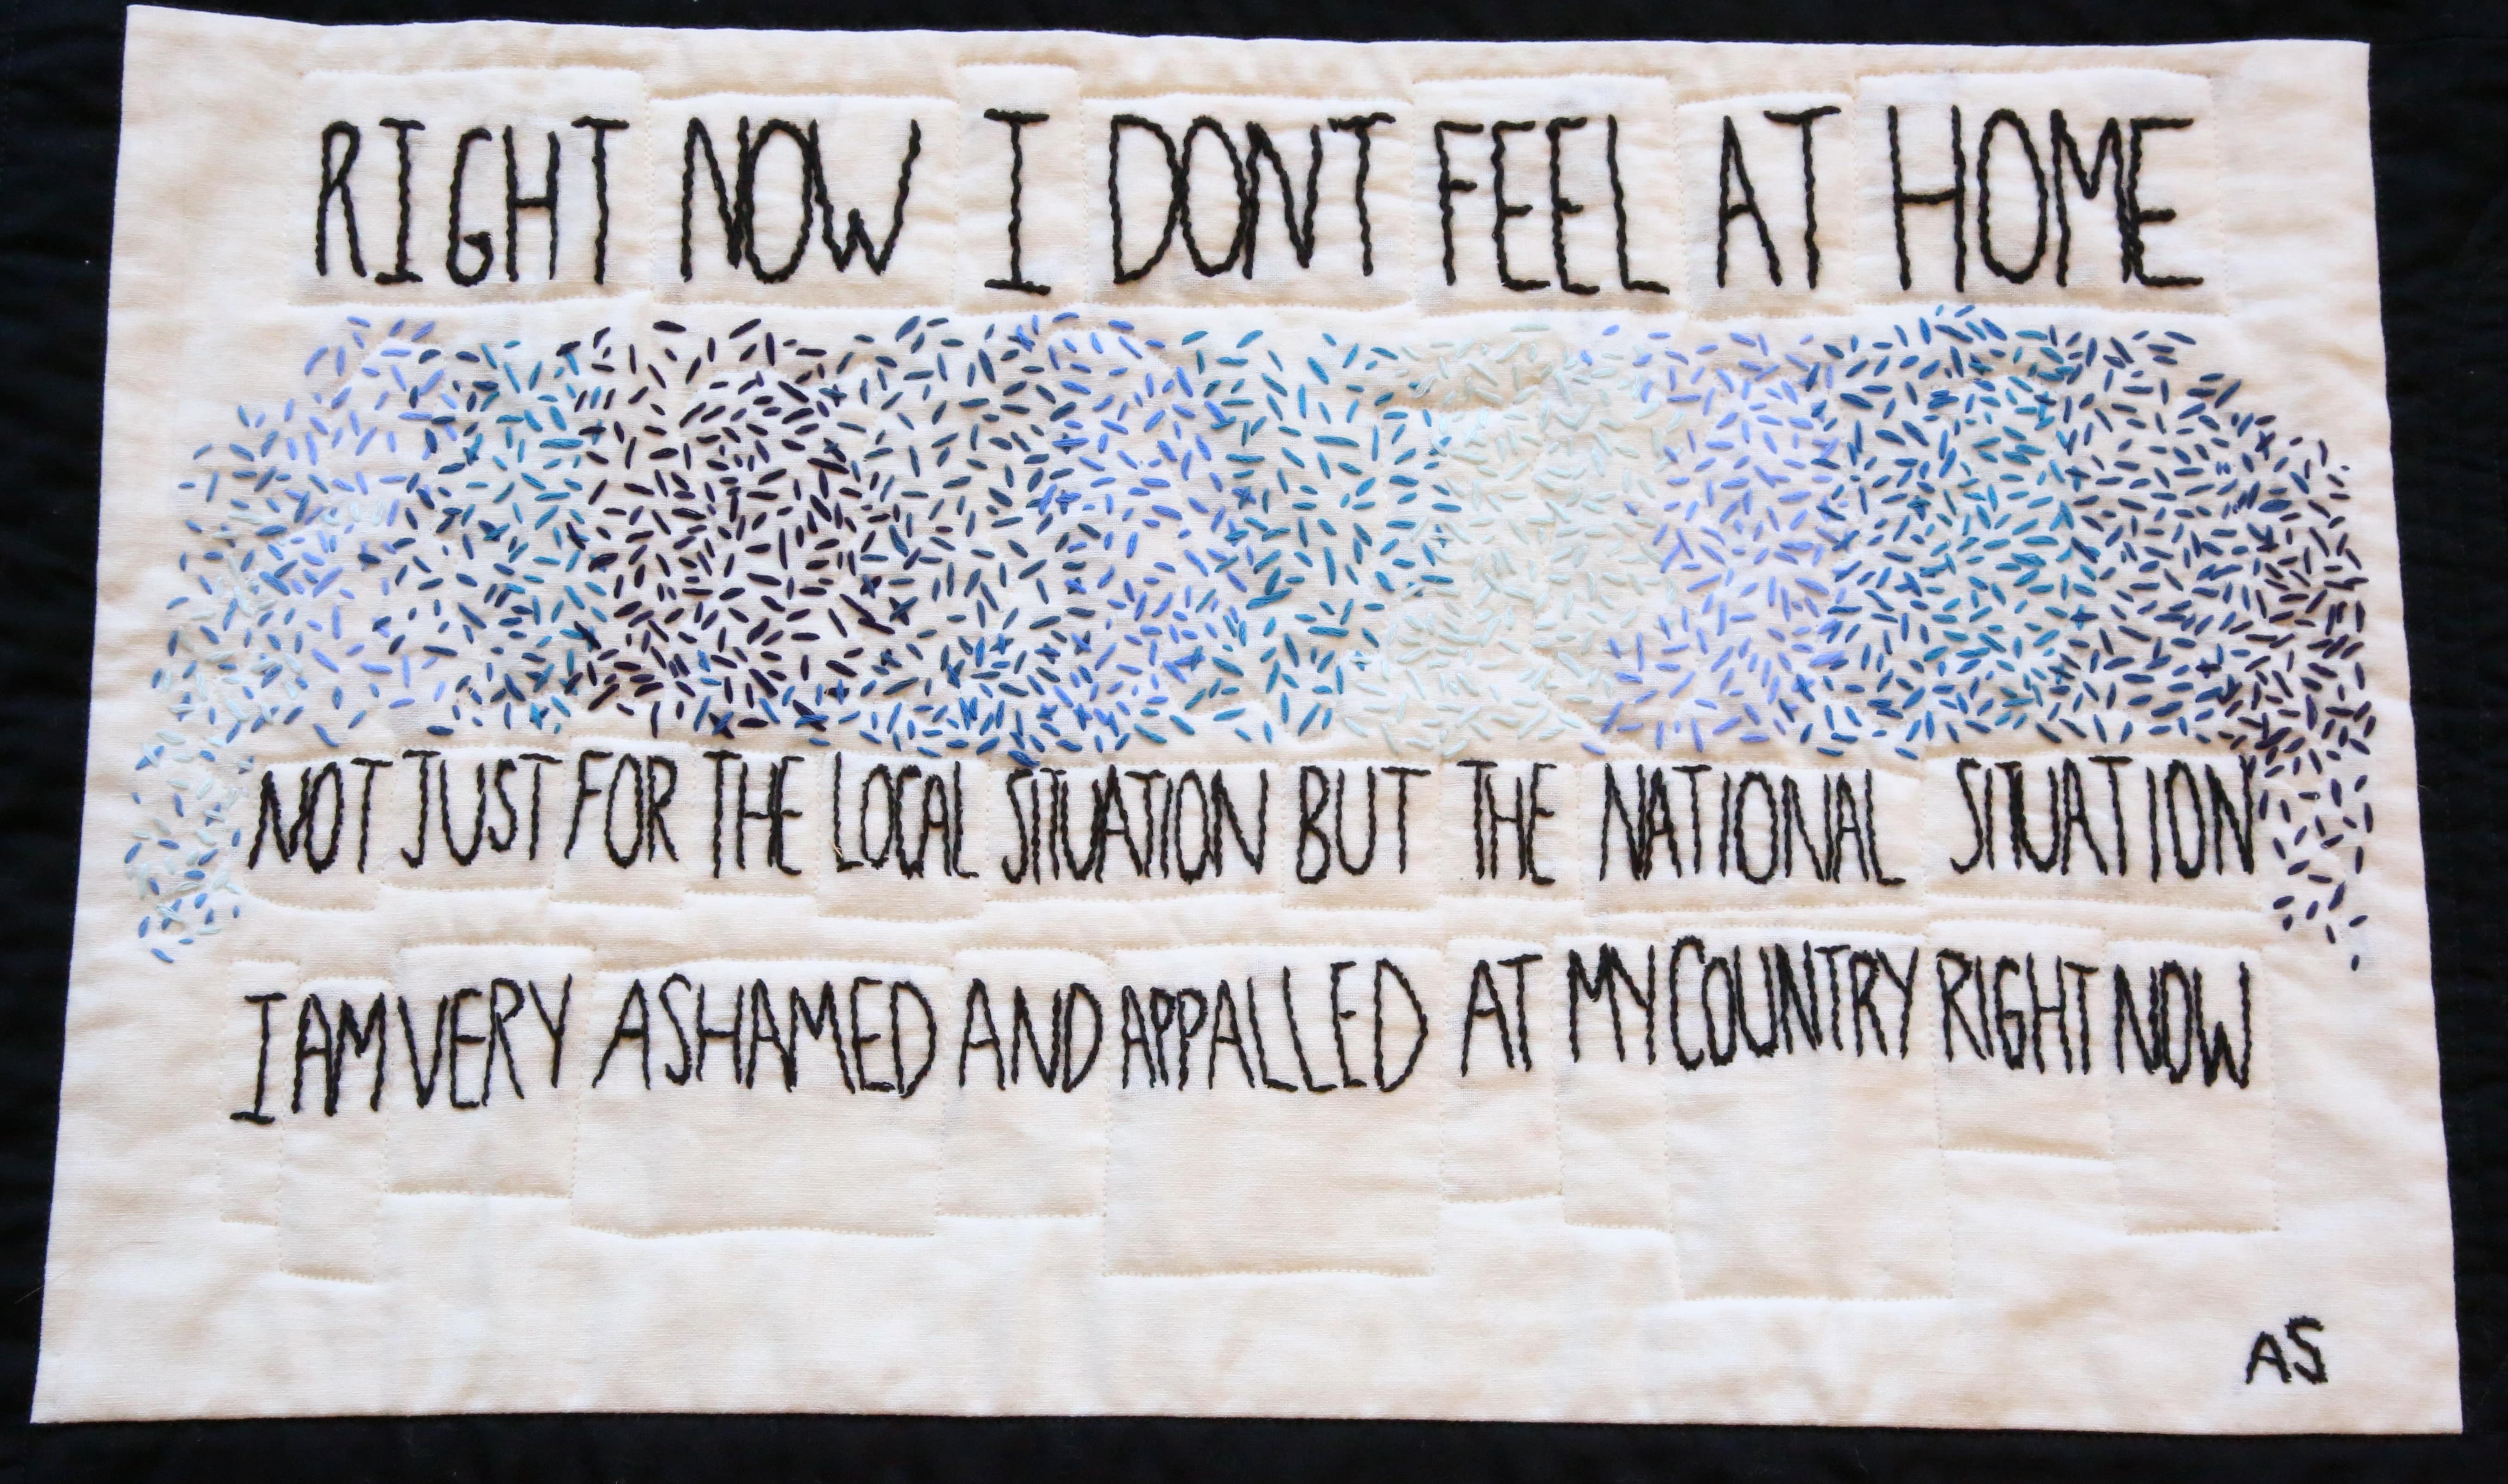 RIGHT NOW I DONT FEEL AT HOME
NOT JUST FOR THE LOCAL SITUATION BUT THE NATIONAL SITUATION
I AM VERY ASHAMED AND APPALLED AT MY COUNTRY RIGHT NOW
AS